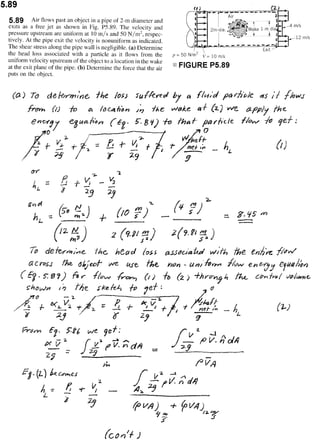 5.89
5.89 Air flows past an object in a pipe of 2-m diameter and
exits as a free jet as shown in Fig. P5.89. The velocity and
pressure upstream are uniform at 10 m/s and 50 N/m², respec-
tively. At the pipe exit the velocity is nonuniform as indicated.
The shear stress along the pipe wall is negligible. (a) Determine
the head loss associated with a particle as it flows from the
uniform velocity upstream of the object to a location in the wake
at the exit plane of the pipe. (b) Determine the force that the air
puts on the object.
Air
2-m-dia.
Wake
4 m/s
12 m/s
Exit
p = 50 N/m²
V = 10 m/s
FIGURE P5.89
(a) To determine the loss suffered by a fluid particle as it flows
from (1) to a location in the wake at (2) we apply the
energy equation (Eq. 5.84) to that particle flow to get:
p₂/γ + V₂²/2g + z₂ = p₁/γ + V₁²/2g + z₁ + w shaft net in/g - h_L (1)
or
h_L = p₁/γ + V₁²/2g - V₂²/2g
and
h_L = (50 N/m²)/(12 N/m³) + (10 m/s)²/2(9.81 m/s²) - (4 m/s)²/2(9.81 m/s²) = 8.45 m
To determine the head loss associated with the entire flow
across the object we use the non-uniform flow energy equation
(Eq. 5.87) for flow from (1) to (2) through the control volume
shown in the sketch to get:
From Eq. 5.86 we get:
Eq. (2) becomes
(con't)